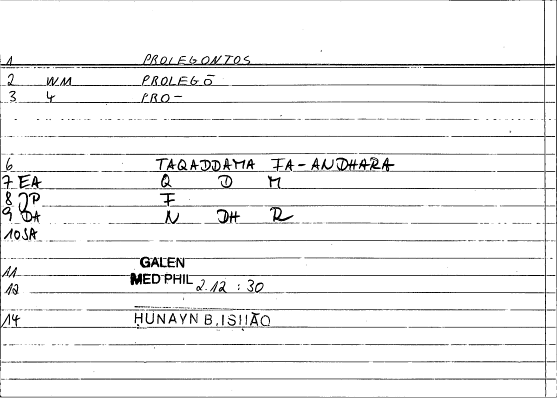 1 PROLEGONTOS
2 WM PROLEGŌ
3 4 PRO-
6 TAQADDAMA FA-ANDHARA
7 EA Q D M
8 JP F
9 DA N DH R
10 SA
11 GALEN
12 MED PHIL 2.12 : 30
14 ḤUNAYN B. ISḤĀQ